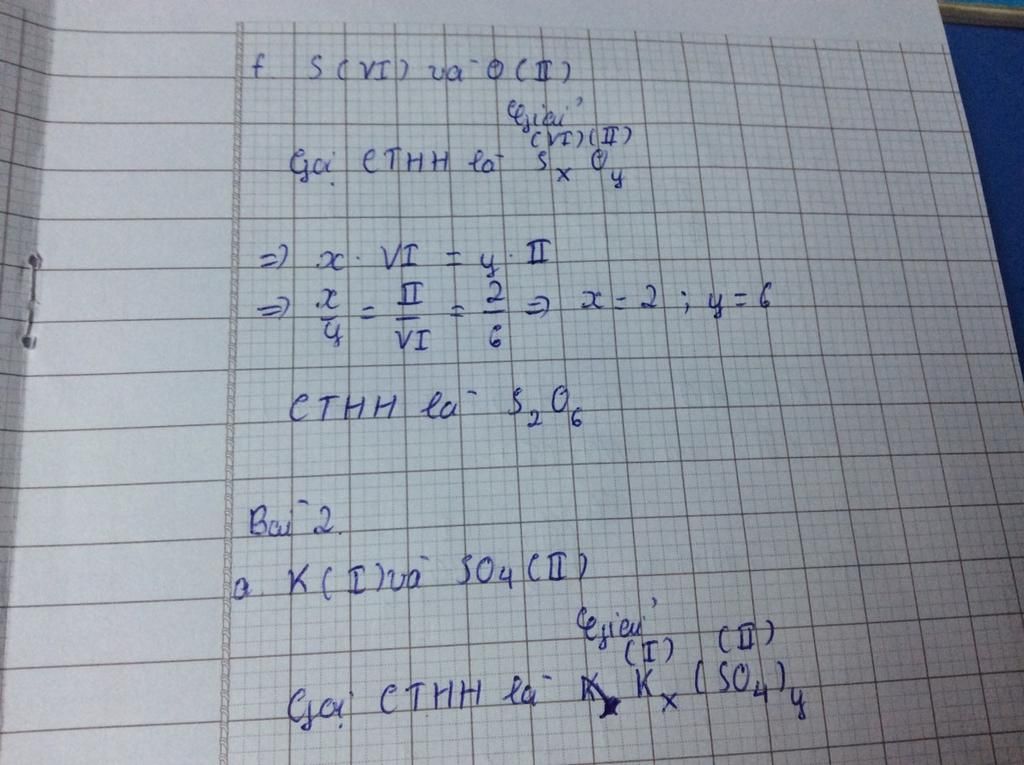 f. S (VI) và O (II)
Giải
(VI) (II)
Gọi CTHH là SxOy
=> x . VI = y . II
=> x/y = II/VI = 2/6 => x = 2 ; y = 6
CTHH là S2O6
Bài 2.
a. K (I) và SO4 (II)
Giải
(I) (II)
Gọi CTHH là Kx (SO4)y